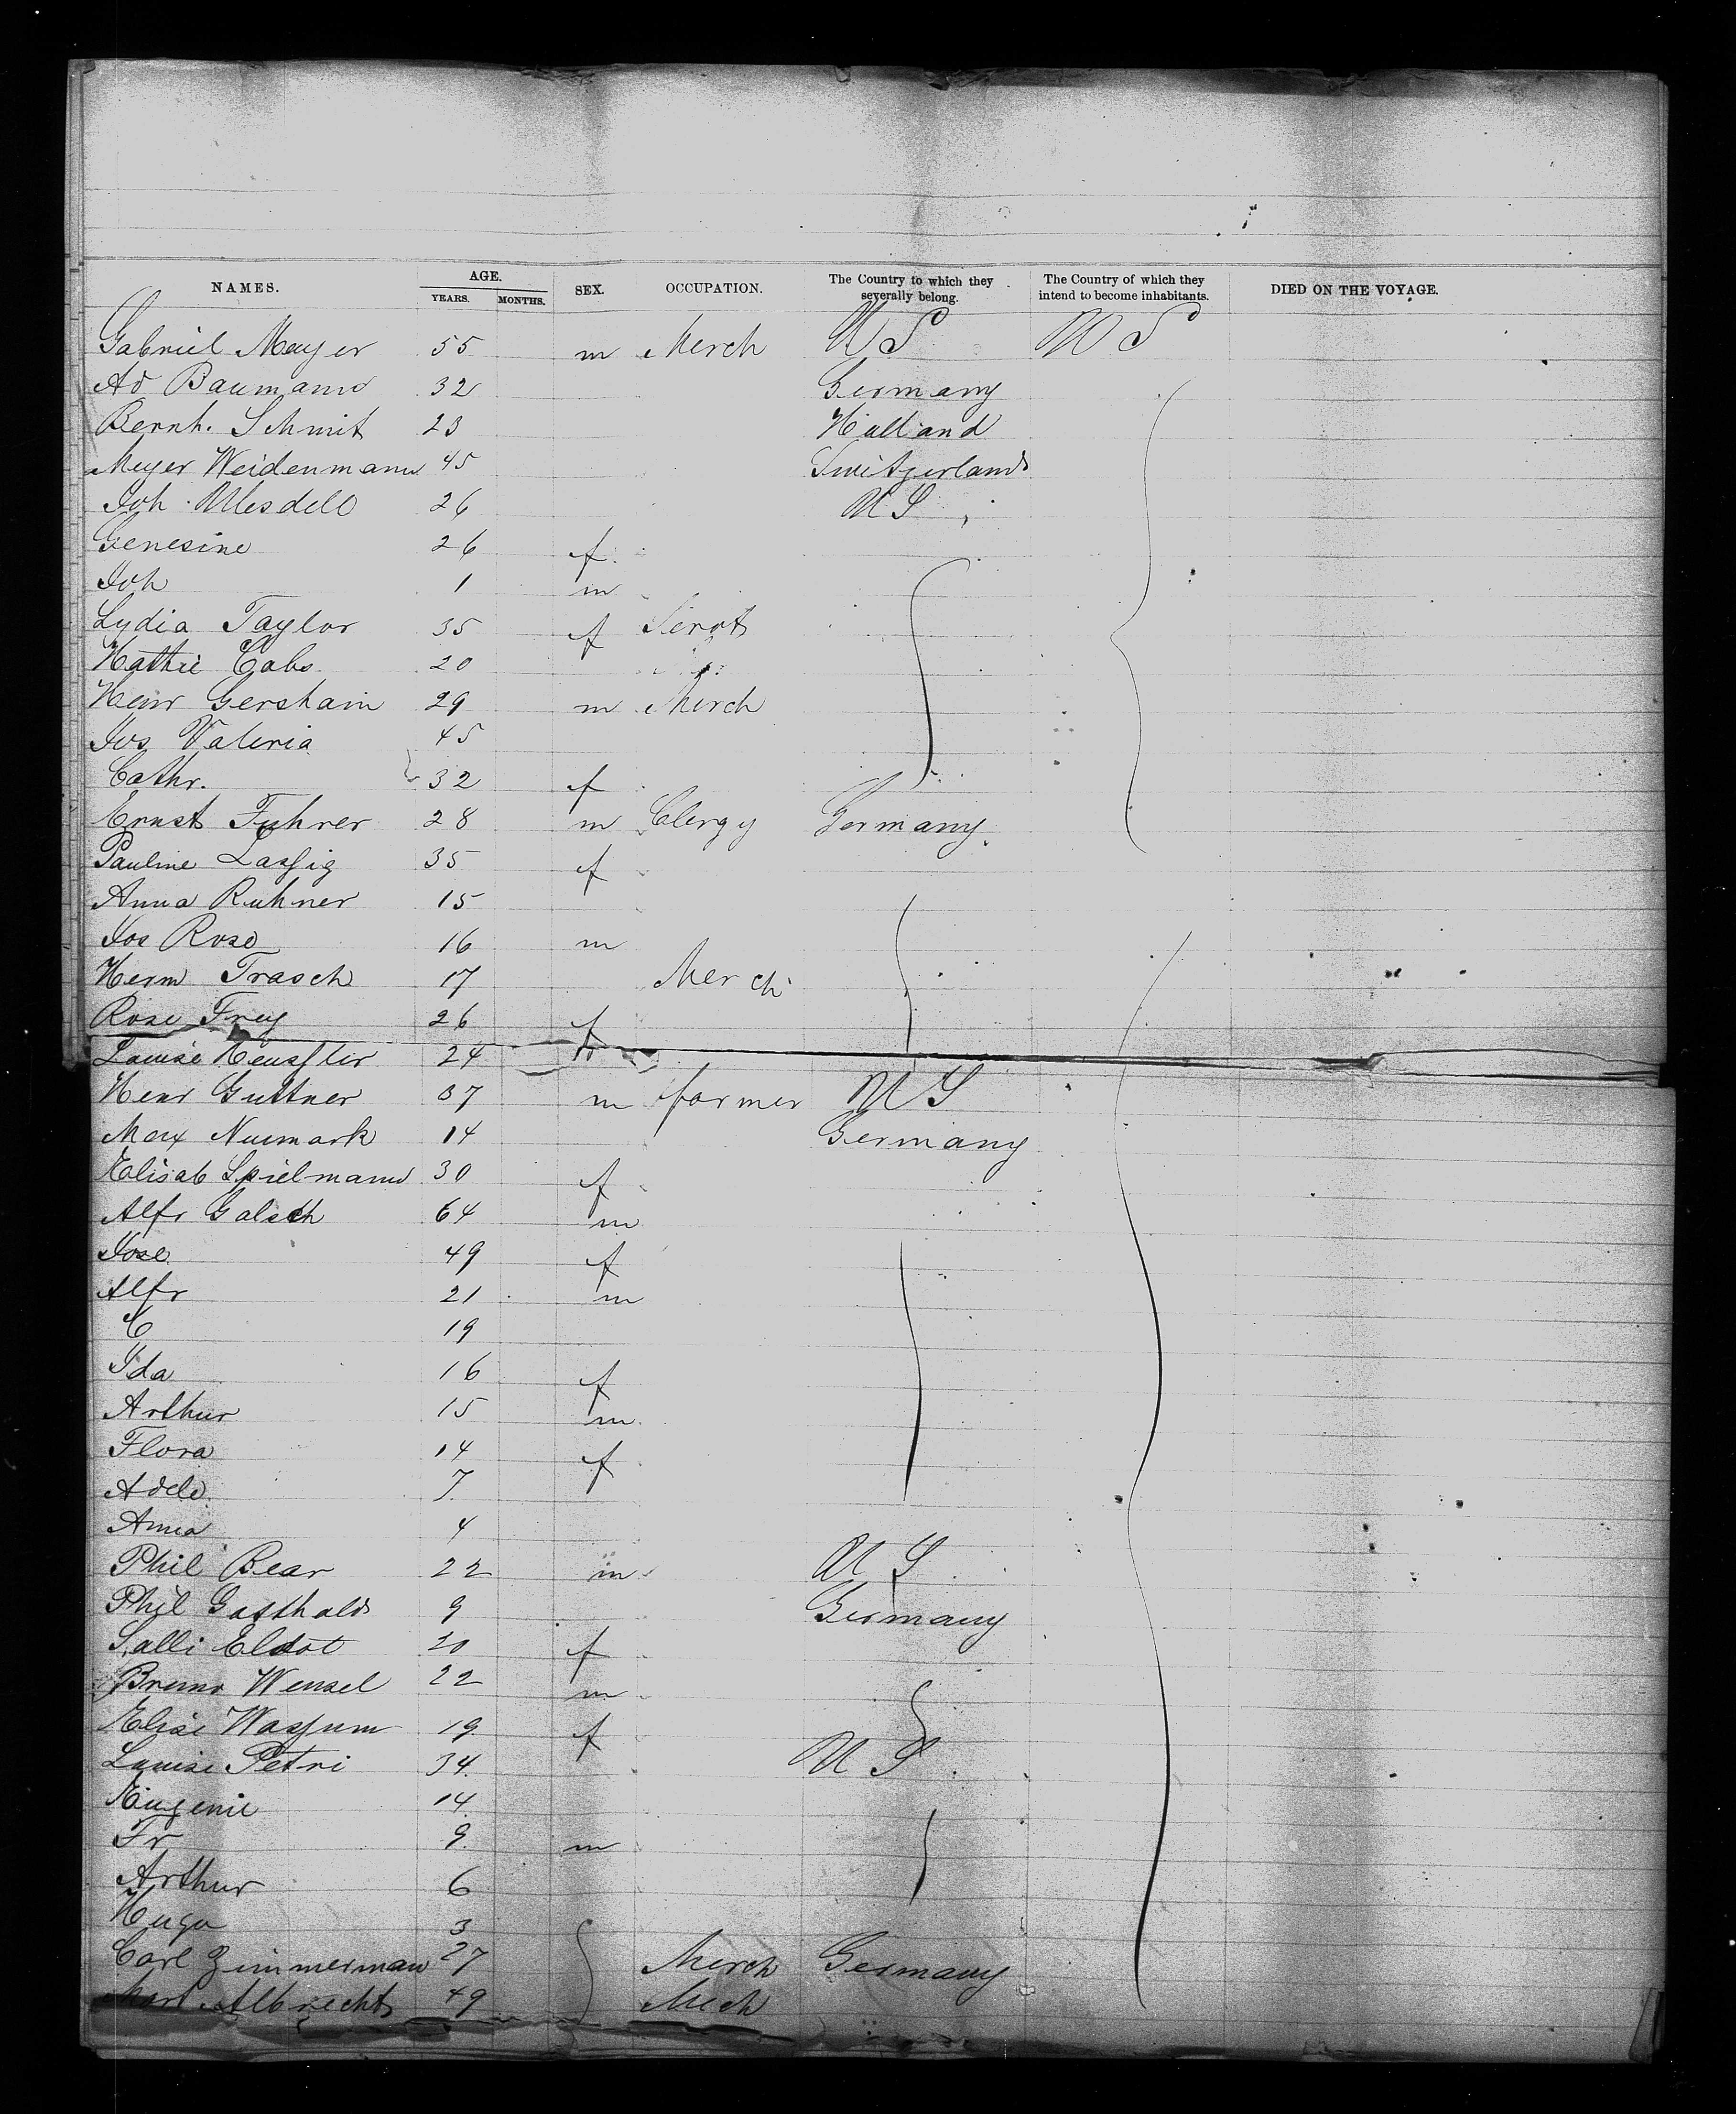 NAMES. AGE. YEARS. MONTHS. SEX. OCCUPATION. The Country to which they severally belong. The Country of which they intend to become inhabitants. DIED ON THE VOYAGE.
Gabriel Mayer 55 m Merch U S U S
Ad Baumann 32 Germany
Bernh. Schmit 23 Holland
Meyer Weidenmann 45 Switzerland
Joh 26 U S
Genesine 26 f
Joh 1 m
Lydia Taylor 35 f Servt
20
Henr 29 m Merch
Jos Valeria 45
Cathr. 32 f
Ernst Fuhrer 28 m Clergy Germany
Pauline Lassig 35 f
Anna Ruhner 15
Jos Rose 16 m
Herm Trasch 17 Merch
Rose Frey 26 f
Louise Heussler 24
Henr Guttner 37 m farmer U S
Max Neumark 14 Germany
Elisab Spielmann 30 f
Alfr 64 m
Jose 49 f
Alfr 21 m
C 19
Ida 16 f
Arthur 15 m
Flora 14 f
Adele 7
Anna 4
Phil Bear 22 m U S
Phil Gotthold 9 Germany
Salli 20 f
Bruno Wensel 22 m
Elise Wassum 19 f
Louise Petri 34 U S
Eugenie 14
Fr 9 m
Arthur 6
Hugo 3
Carl Zimmerman 27 Merch Germany
Albrecht 49 Mech